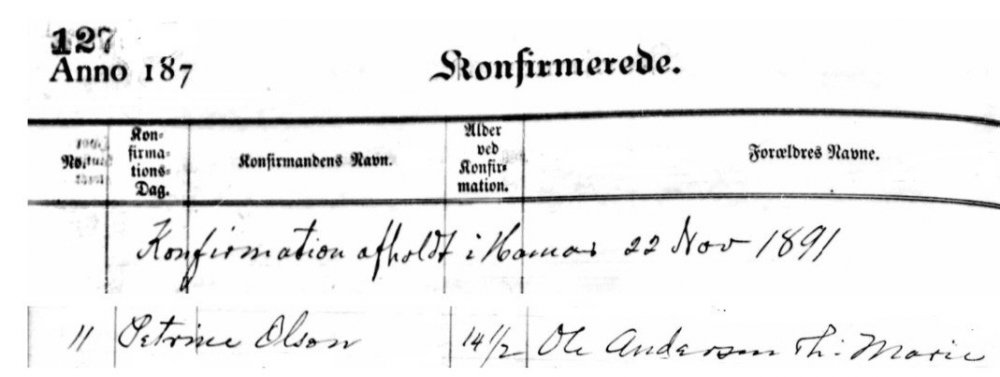 127
Anno 187
Konfirmerede.
No.
Kon-
firma-
tions-
Dag.
Konfirmandens Navn.
Alder
ved
Konfir-
mation.
Forældres Navne.
Konfirmation afholdt i Hamar 22 Nov 1891
11 Petrine Olson 14 1/2 Ole Anderson Th: Marie